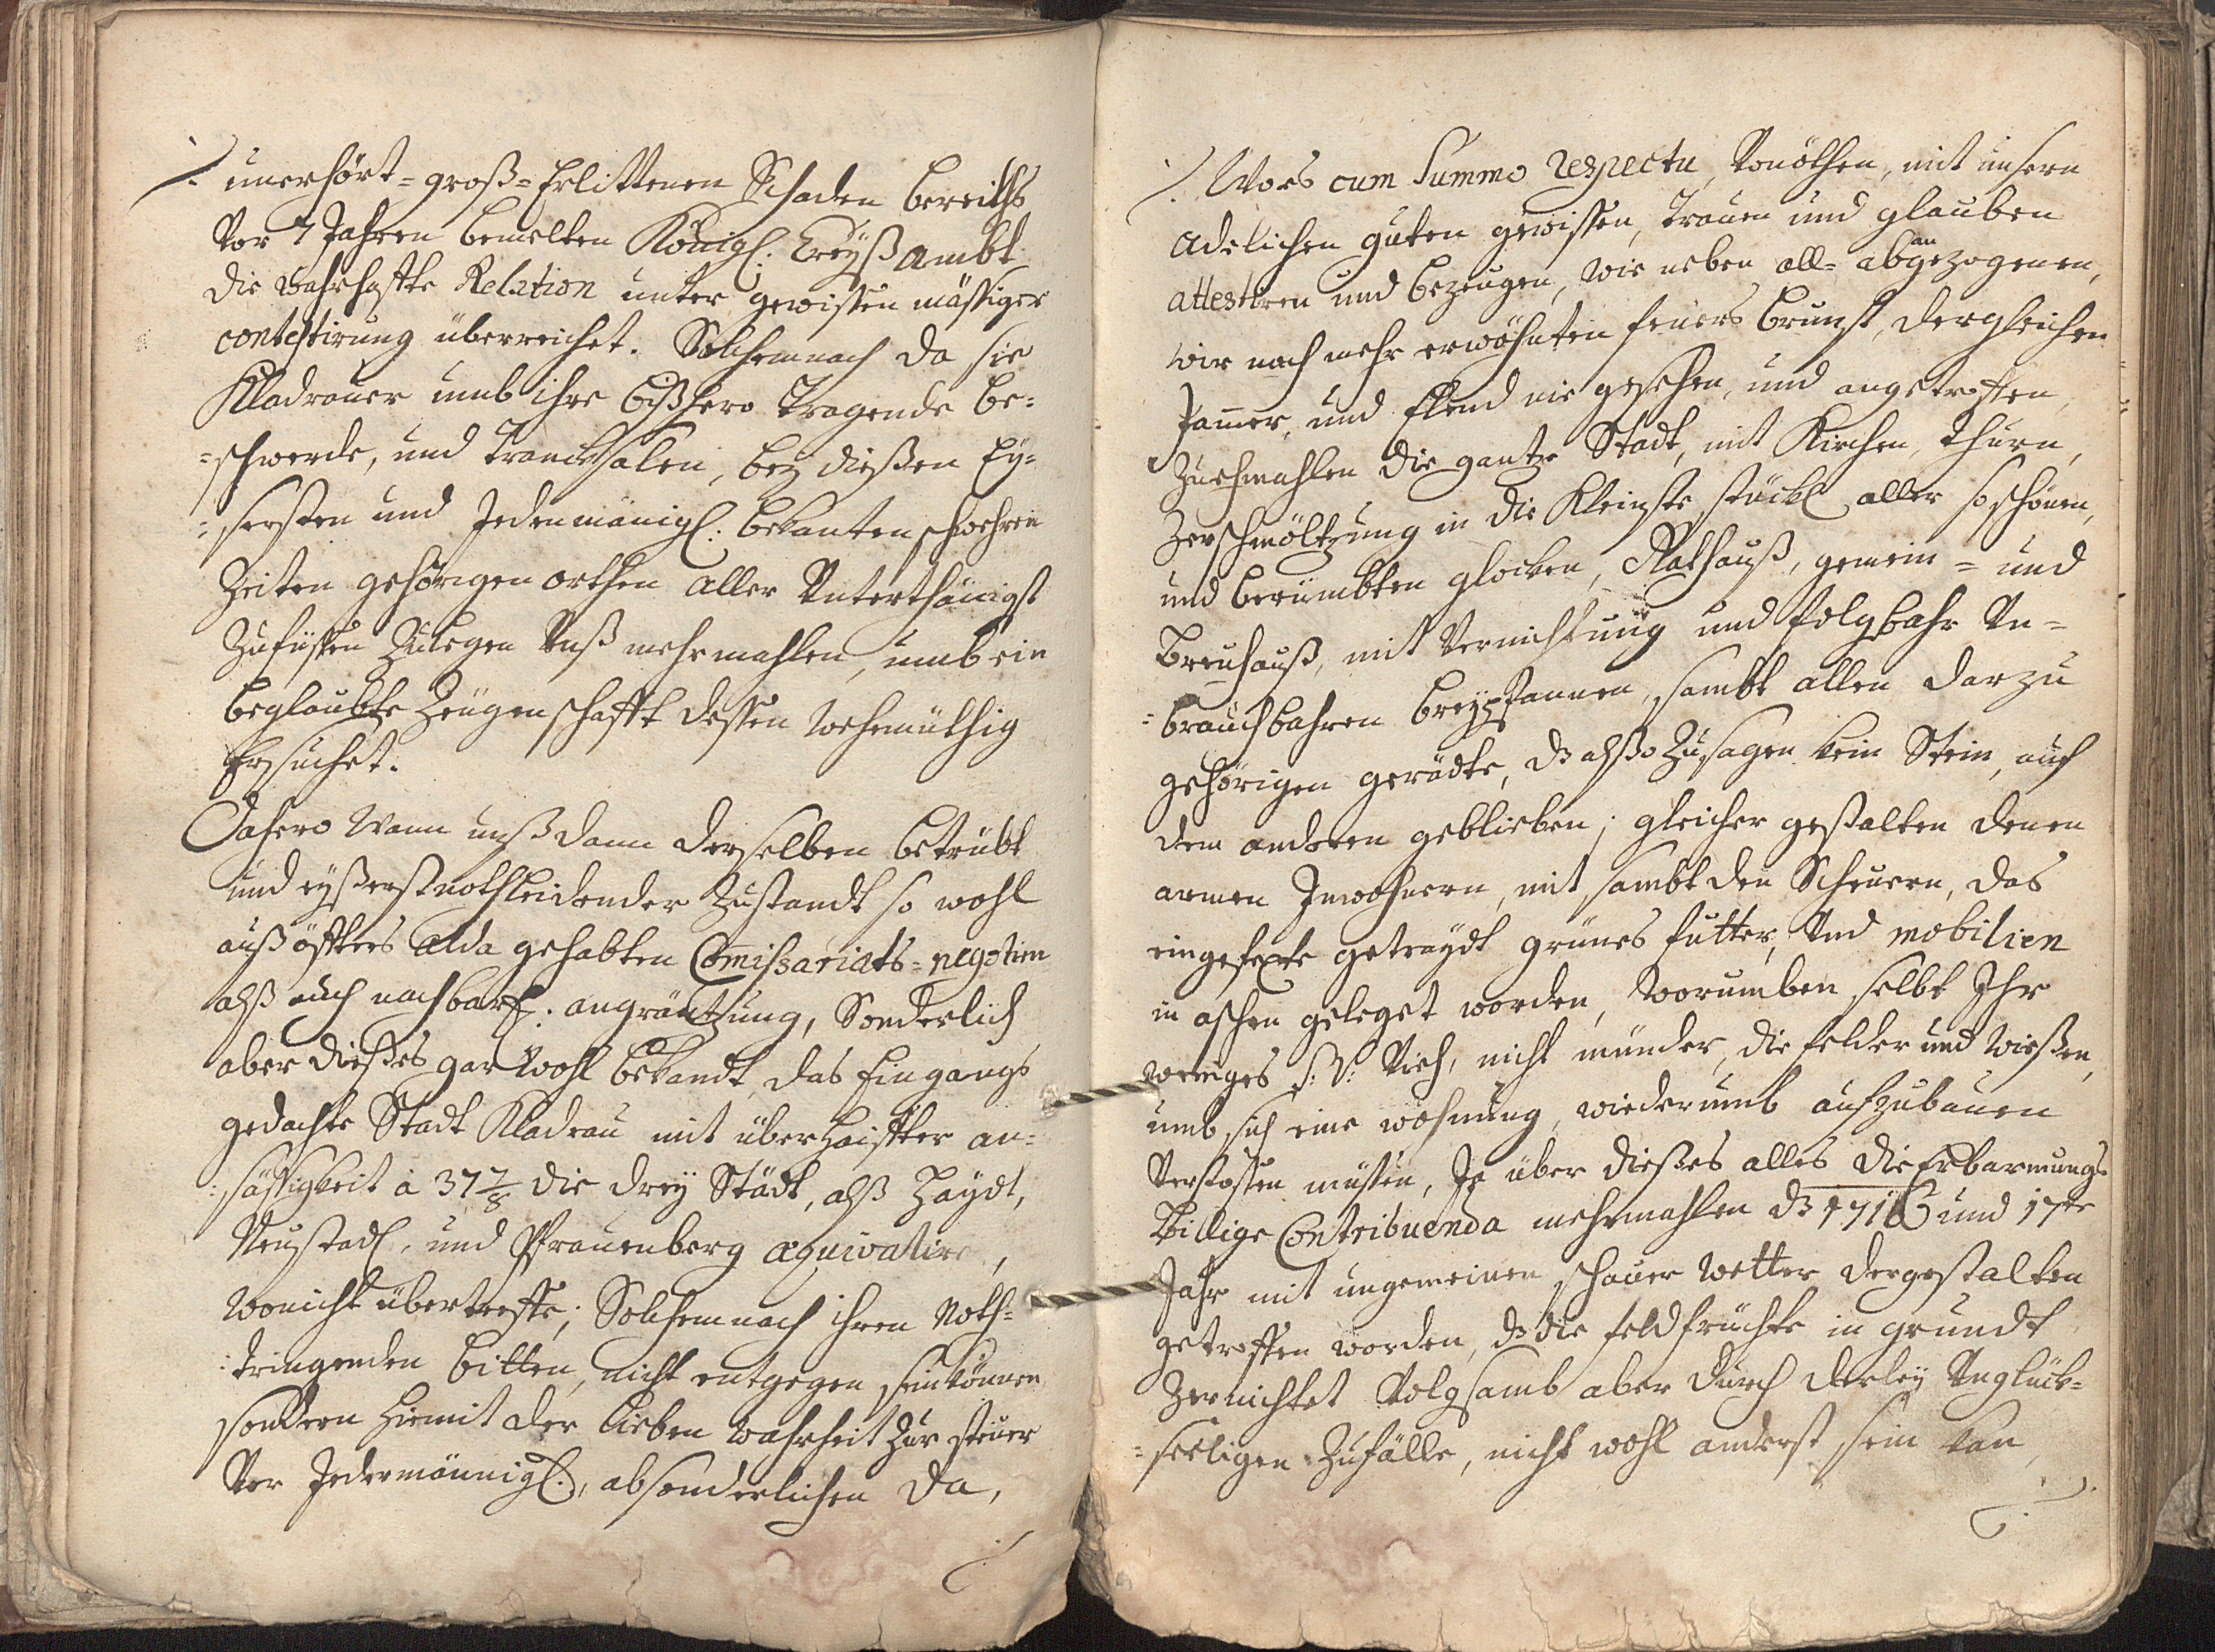 unerhört-groß-Erlittenen Schaden bereiths
Vor 7 Jahren bemelten Königl: Creyß ambt
die wahrhaffte Relation unter gewissen mässiger
contestirung überreichet. Solchemnach da sie
Kladrauer umb ihre bißhero tragende be-
-schwerde, und Trancksalen, bey dießen Ey-
-sersten und Jedenmänigl: bekanten schwehren
Zeiten gehörigen orthen aller Unterthänigst
Zufüssen Zulegen Unß mehrmahlen, umb ein
beglaubte Zeügenschafft dessen wehemüthig
Ersuchet.
Dahero Wann unß dann derselben betrübt
und eyßerst nothleidender Zustandt so wohl
auß öffters alda gehabten Comissariats-negotien
alß auch nachbarl: angräntzung, Sonderlich
aber dießes gar wohl bekandt, das Eingangs
gedachte Stadt Kladrau mit überhäuffter an-
-sässigkeit à 37 7/8 die drey Städt, alß Haydt,
Neustadl, und Pfrauenberg æquivalire,
wonicht übertreffe; Solchemnach ihren Noth-
-tringenden bitten, nicht entgegen sein können
sondern hiemit der lieben wahrheit Zur steuer
Vor Jedermännigl:, absonderlichen da,
Wors cum Summo respectu, Vonöthen, mit unsern
adelichen guten gewissen, Trauen und glauben
attestiren und bezeugen, wie neben all- abgezogenen,
an
wir nach mehr erwöhnten feuers brunst, dergleichen
Jamer, und Elend nie gesehen, und angetroffen,
Zuehmahlen die gantze Stadt, mit Kirchen, thurn,
Zerschmöltzung in die Kleinste stückl aller so schönen,
und berümbten glocken, Rathauß, gemein- und
breuhauß, mit Vernichtung und folgbahr Un-
-brauchbahren breypfannen, sambt allen darzu
gehörigen gerädte, dz alßo Zusagen kein Stein, auf
dem anderen geblieben; gleicher gestalten denen
armen Inwohnern, mit sambt den Scheuern, das
eingefexte getraydt grünes futter, Und mobilien
in aschen geleget worden, worumben selbt Ihr
weniges s: v: Vieh, nicht münder, die felder und wießen,
umb sich eine wohnung, wiederumb aufzubauen
Verstossen müssen, Ja über dießes alles die Erbarmungs
billige Contribuenda mehrmahlen dz 1716 und 17te
Jahr mit ungemeinen schauer wetter dergestalten
getroffen worden, dz die feldfrüchte in grundt
Zernichtet Volgsamb aber durch derley Unglück-
-seeligen Zufälle, nicht wohl anderst sein kan,